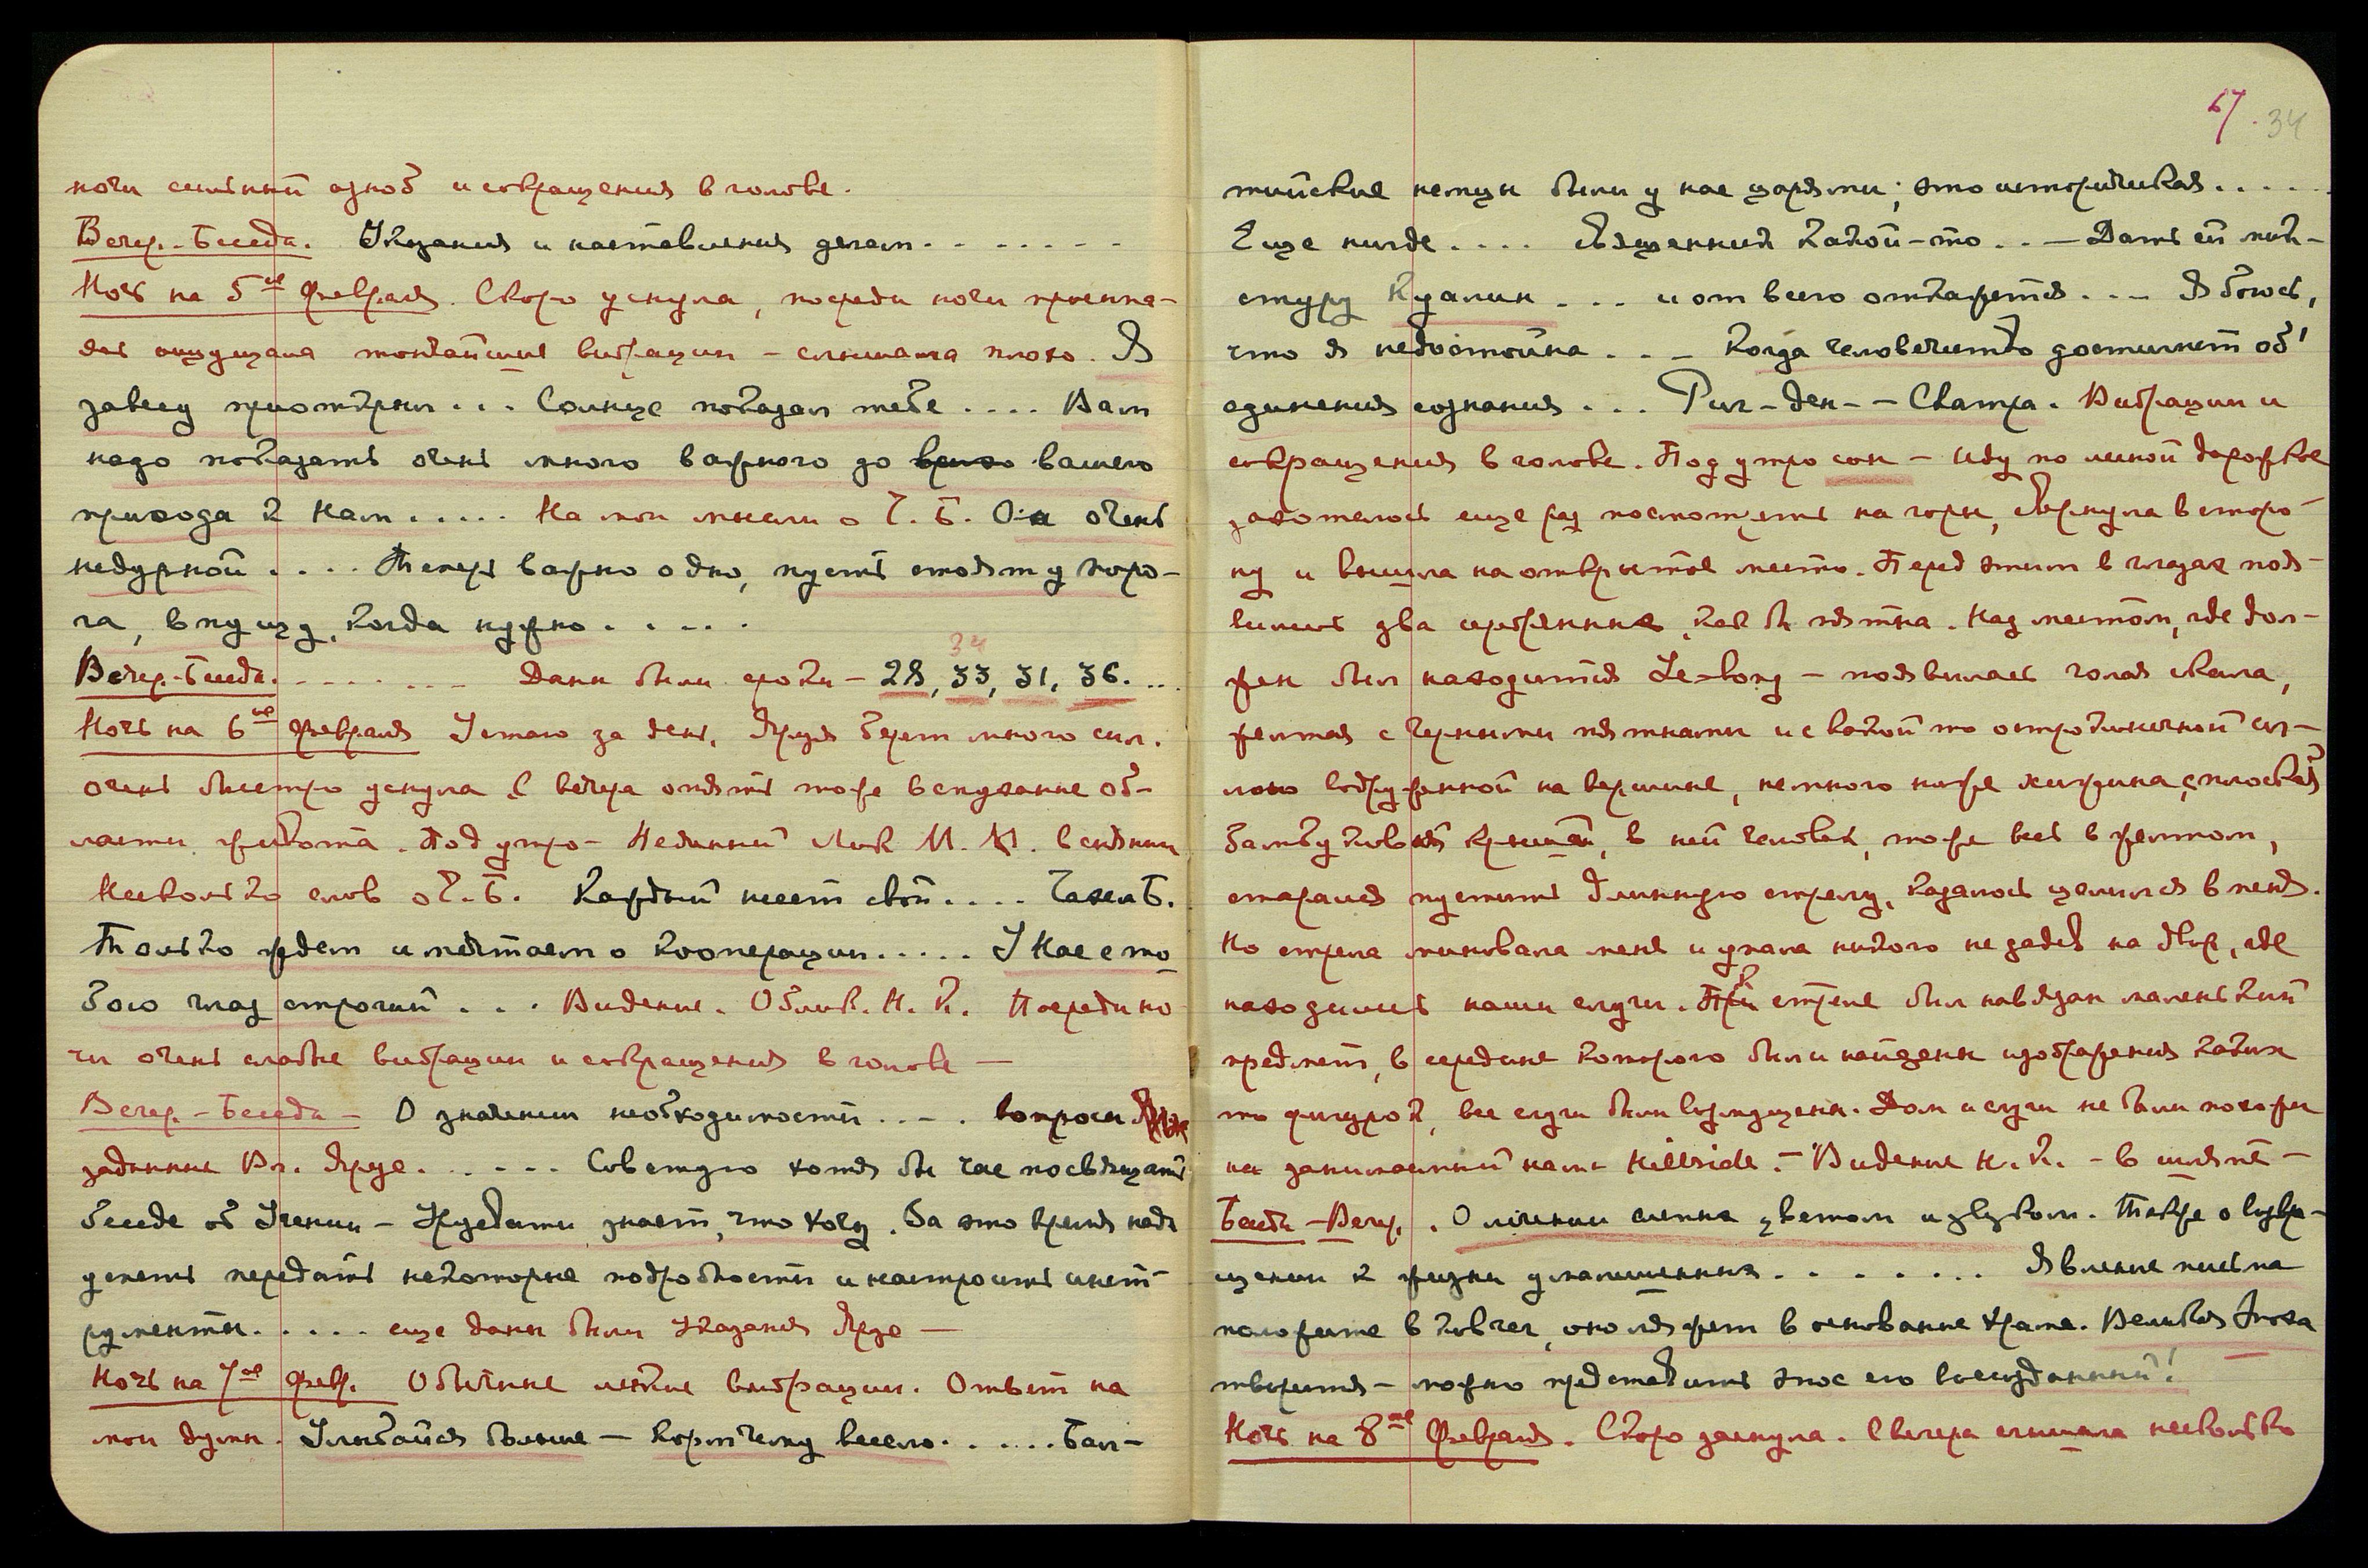 ночи сильный озноб и сокращения в голове.
Вечер.-Беседа. Указания и наставления делам........
Ночь на 5ое февраля. Скоро уснула, посреди ночи просыпа-
ясь ощущала тончайшие вибрации – слышала плохо. Я
завесу приоткрыл... Солнце показал тебе.... Вам
надо показать очень много важного до вашего
прихода к Нам..... На мои мысли о Ч. Б. Она очень
недурной.... Теперь важно одно, пусть стоят у поро-
га, впущу, когда нужно.....
34
Вечер.-Беседа. ....... Даны были сроки – 28, 33, 31, 36...
Ночь на 6ое февраля Устаю за день, Яруя берет много сил.
очень быстро уснула С вечера опять тоже вспухание об-
ласти живота. Под утро – Лик М. М.
Несколько слов о Ч. Б. Каждый несет свой.... Чахем Б.
Только ждем и мечтаем о кооперации..... У Нас с то-
бою глаз строгий... Видение. Облик. Н. К. Посреди но
чи очень слабые вибрации и сокращения в голове —
Вечер.-Беседа – О значении необходимости.... вопросы
заданные Вл. Яруе...... Советую хотя бы час посвящать
беседе об Учении – Урусвати знает, что хочу. За это время надо
успеть передать некоторые подробности и настроить инст-
рументы..... еще даны были Указания Яруе —
Ночь на 7ое Февр. Обычные легкие вибрации. Ответ на
мои думы. Улыбайся больше – кормчему весело...... Бал-
67. 34
тийские немцы были у нас царями; это историческая.....
Еще нигде.... священник какой-то..– Дать ей мик-
стуру Куалин... и от всего откажется... Я боюсь,
что я недостойна... – Когда человечество достигнет об'
единения сознания... Риг-ден-– Champa. Вибрации и
сокращения в голове. Под утро сон – Иду по лесной дорожке
захотелось еще раз посмотреть на горы, свернула в сторо-
ну и вышла на открытое место. Перед этим в глазах поя-
вились два серебряных, как бы пятна. Над местом, где дол-
жен был находиться Le-long – появилась голая скала,
желтая с черными пятнами и с какой то остроконечной
на вершине, немного ниже хижина, с плоской
бамбуковой крышей, в ней человек, тоже весь в желтом,
старался пустить длинную стрелу, казалось целился в меня.
Но стрела миновала меня и упала никого не задев на двор, где
находились наши слуги. К стреле был навязан маленький
предмет, в середине которого были найдены изображения каких
то фигурок, все слуги были возмущены. Дом и слуги не были похожи
на занимаемый нами Hillside.– Видение Н. К. – в шляпе –
Беседа – Вечер. . О лечении слепых цветом и звуком. Также о возвра-
щении к жизни умалишенных........ Явление письма
положите в ковчег, оно ляжет в основание Храма. Великая эпоха
творится – можно представить эпос его всенародный!
Ночь на 8ое Февраля. Скоро заснула. С вечера слышала несколько